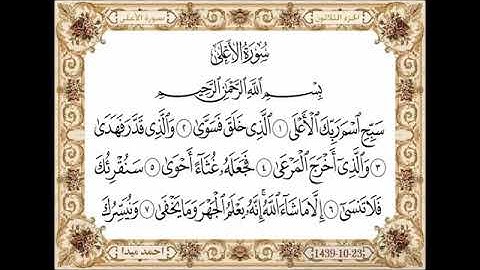 الجزء الثلاثون
سورة الأعلى
سُورَةُ الأَعْلَىٰ
بِسْمِ اللَّهِ الرَّحْمَٰنِ الرَّحِيمِ
سَبِّحِ ٱسْمَ رَبِّكَ ٱلْأَعْلَى ١ ٱلَّذِى خَلَقَ فَسَوَّىٰ ٢ وَٱلَّذِى قَدَّرَ فَهَدَىٰ
٣ وَٱلَّذِىٓ أَخْرَجَ ٱلْمَرْعَىٰ ٤ فَجَعَلَهُۥ غُثَآءً أَحْوَىٰ ٥ سَنُقْرِئُكَ
فَلَا تَنسَىٰٓ ٦ إِلَّا مَا شَآءَ ٱللَّهُ ۚ إِنَّهُۥ يَعْلَمُ ٱلْجَهْرَ وَمَا يَخْفَىٰ ٧ وَنُيَسِّرُكَ
احمد ميدا
1439-10-23